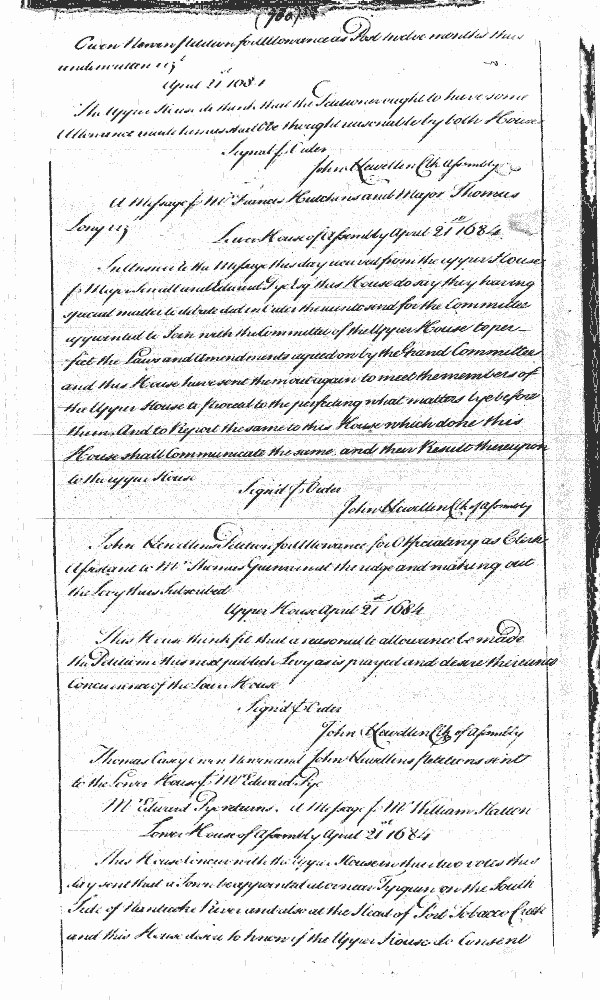 (760)
Owen Newen petition for Allowance as Post twelve months thus
underwritten vizt
April 21st 1684
The Upper House do think that the Petitioner ought to have some
Allowance made him as shall be thought reasonable by both Houses
Signed p Order
John Llewellen Clk Assembly
A Message p Mr Francis Hutchens and Major Thomas
Long vizt
Lower House of Assembly April 21st 1684
In Answer to the Message this day from the upper House
p Major Sewall and Edward Pye Esqr this House do say they having
special matter to debate did order them to send for the Committee
appointed to Join with the Committee of the Upper House to per-
fect the Laws and Amendments agreed on by the Grand Committee
and this House have sent them out again to meet the members of
the Upper House to proceed to the perfecting what matters lye before
them, And to Report the same to this House which done this
House shall Communicate the same, and their Result thereupon
to the upper House
Signed p Order
John Llewellen Clk of Assembly
John Llewellens Petition for Allowance for Officiating as Clerk
Assistant to Mr Thomas and making out
the Levy thus Subscribed
Upper House April 21st 1684
This House think fit that a reasonable allowance be made
the Petitioner this next publick Levy as is prayed and desire
Concurrence of the Lower House
Signed p Order
John Llewellen Clk of Assembly
Thomas Casey Owen Newen and John Llewellens petitions sent
to the Lower House p Mr Edward Pye
Mr Edward Pye returns. A Message p Mr William Hatton
Lower House of Assembly April 21st 1684
This House Concur with the Upper House in their two votes this
day sent that a Town be appointed at on the South
Side of Nantecoke River and also at the Head of Port Tobacco Creek
and this House desire to know if the Upper House do Consent